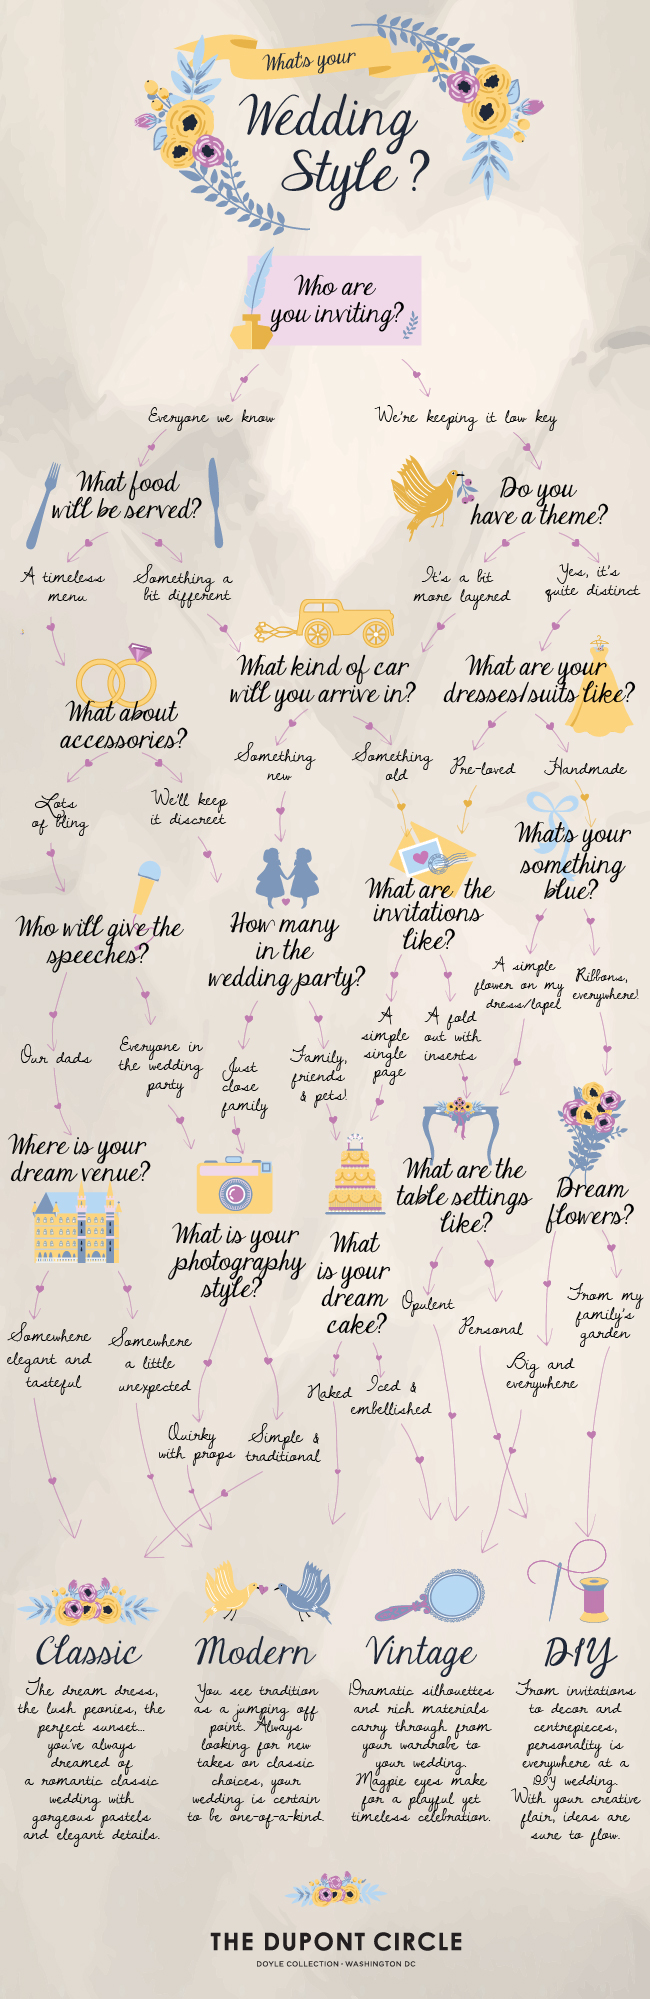 What's your
Wedding
Style?
Who are
you inviting?
Everyone we know
We're keeping it low key
What food
will be served?
Do you
have a theme?
A timeless
menu
Something a
bit different
It's a bit
more layered
Yes, it's
quite distinct
What kind of car
will you arrive in?
What are your
dresses/suits like?
What about
accessories?
Something
new
Something
old
Pre-loved
Handmade
Lots
of bling
We'll keep
it discreet
What's your
something
blue?
What are the
invitations
like?
Who will give the
speeches?
How many
in the
wedding party?
A simple
flower on my
dress/lapel
Ribbons,
everywhere!
A
simple
single
page
A fold
out with
inserts
Our dads
Everyone in
the wedding
party
Just
close
family
Family,
friends
& pets!
Where is your
dream venue?
What are the
table settings
like?
Dream
flowers?
What is your
photography
style?
What
is your
dream
cake?
Opulent
Personal
From my
family's
garden
Somewhere
elegant and
tasteful
Somewhere
a little
unexpected
Big and
everywhere
Naked
Iced &
embellished
Quirky
with props
Simple &
traditional
Classic
The dream dress,
the lush peonies, the
perfect sunset...
you've always
dreamed of
a romantic classic
wedding with
gorgeous pastels
and elegant details.
Modern
You see tradition
as a jumping off
point. Always
looking for new
takes on classic
choices, your
wedding is certain
to be one-of-a-kind.
Vintage
Dramatic silhouettes
and rich materials
carry through from
your wardrobe to
your wedding.
Magpie eyes make
for a playful yet
timeless celebration.
DIY
From invitations
to decor and
centrepieces,
personality is
everywhere at a
DIY wedding.
With your creative
flair, ideas are
sure to flow.
THE DUPONT CIRCLE
DOYLE COLLECTION · WASHINGTON DC